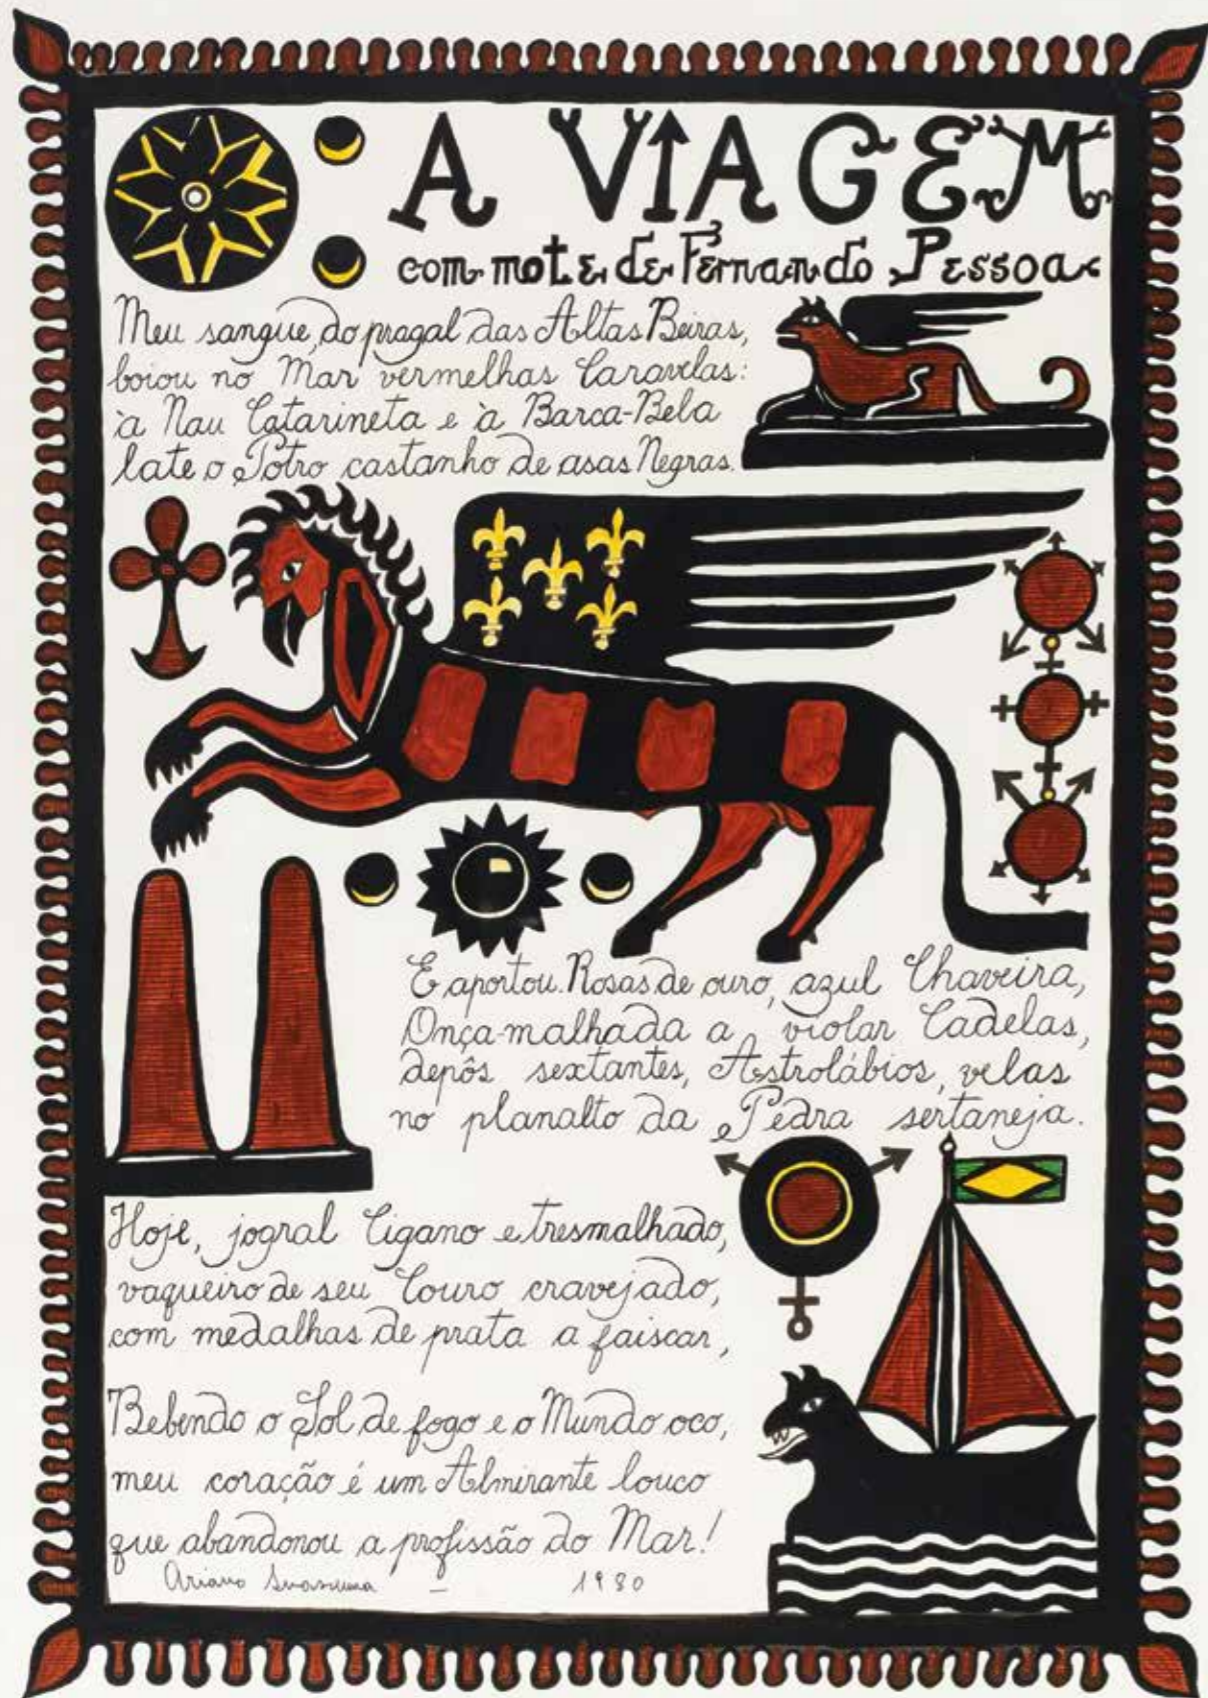 A VIAGEM
com mote de Fernando Pessoa
Meu sangue, do pragal das Altas Beiras,
boiou no Mar vermelhas Caravelas:
à Nau Catarineta e à Barca-Bela
late o Potro castanho de asas Negras.
E aportou. Rosas de ouro, azul Chaveira,
Onça-malhada a violar Cadelas,
depôs sextantes, Astrolábios, velas
no planalto da Pedra sertaneja.
Hoje, jogral Cigano e tresmalhado,
vaqueiro de seu Couro cravejado,
com medalhas de prata a faiscar,
Bebendo o Sol de fogo e o Mundo oco,
meu coração é um Almirante louco
que abandonou a profissão do Mar!
Ariano Suassuna - 1980